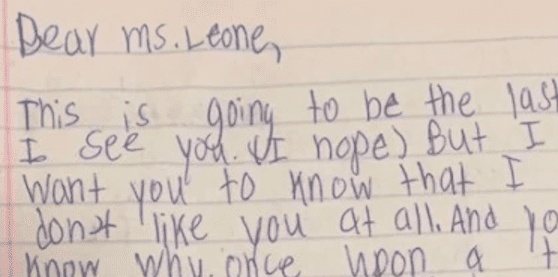 Dear ms. Leone,
This is going to be the last
I see you. (I hope) But I
want you to know that I
don't like you at all. And yo
know why. once upon a t